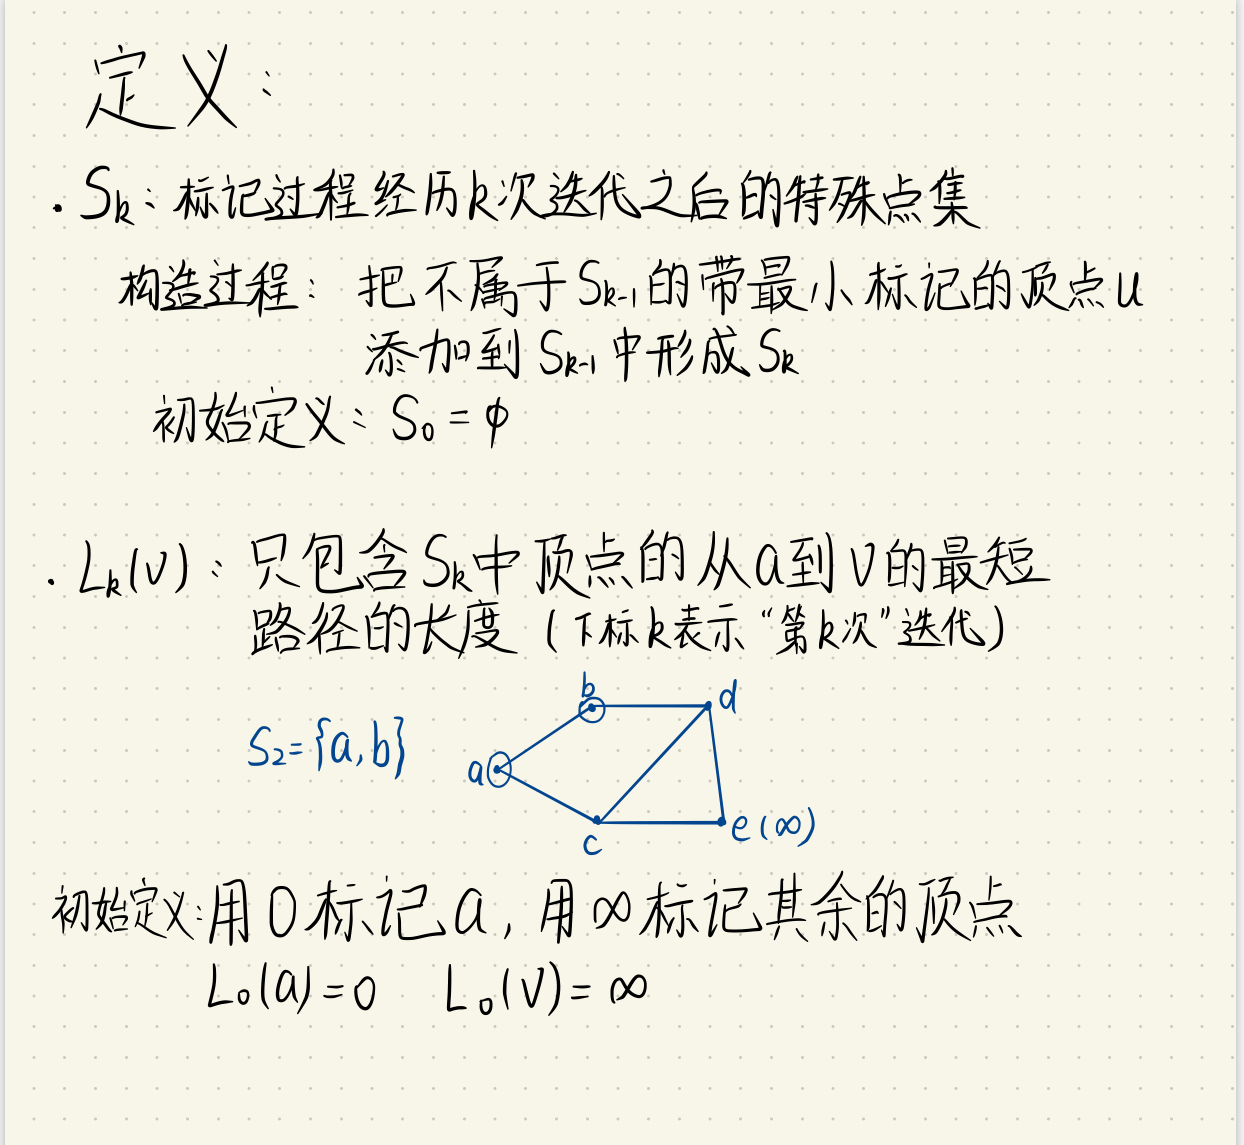 定义:
· Sk: 标记过程经历k次迭代之后的特殊点集
构造过程: 把不属于Sk-1的带最小标记的顶点u
添加到Sk-1中形成Sk
初始定义: S0 = φ
· Lk(v): 只包含Sk中顶点的从a到v的最短
路径的长度 (下标k表示“第k次”迭代)
b
d
S2={a,b}
a
c
e(∞)
初始定义:用0标记a, 用∞标记其余的顶点
L0(a)=0 L0(v)=∞